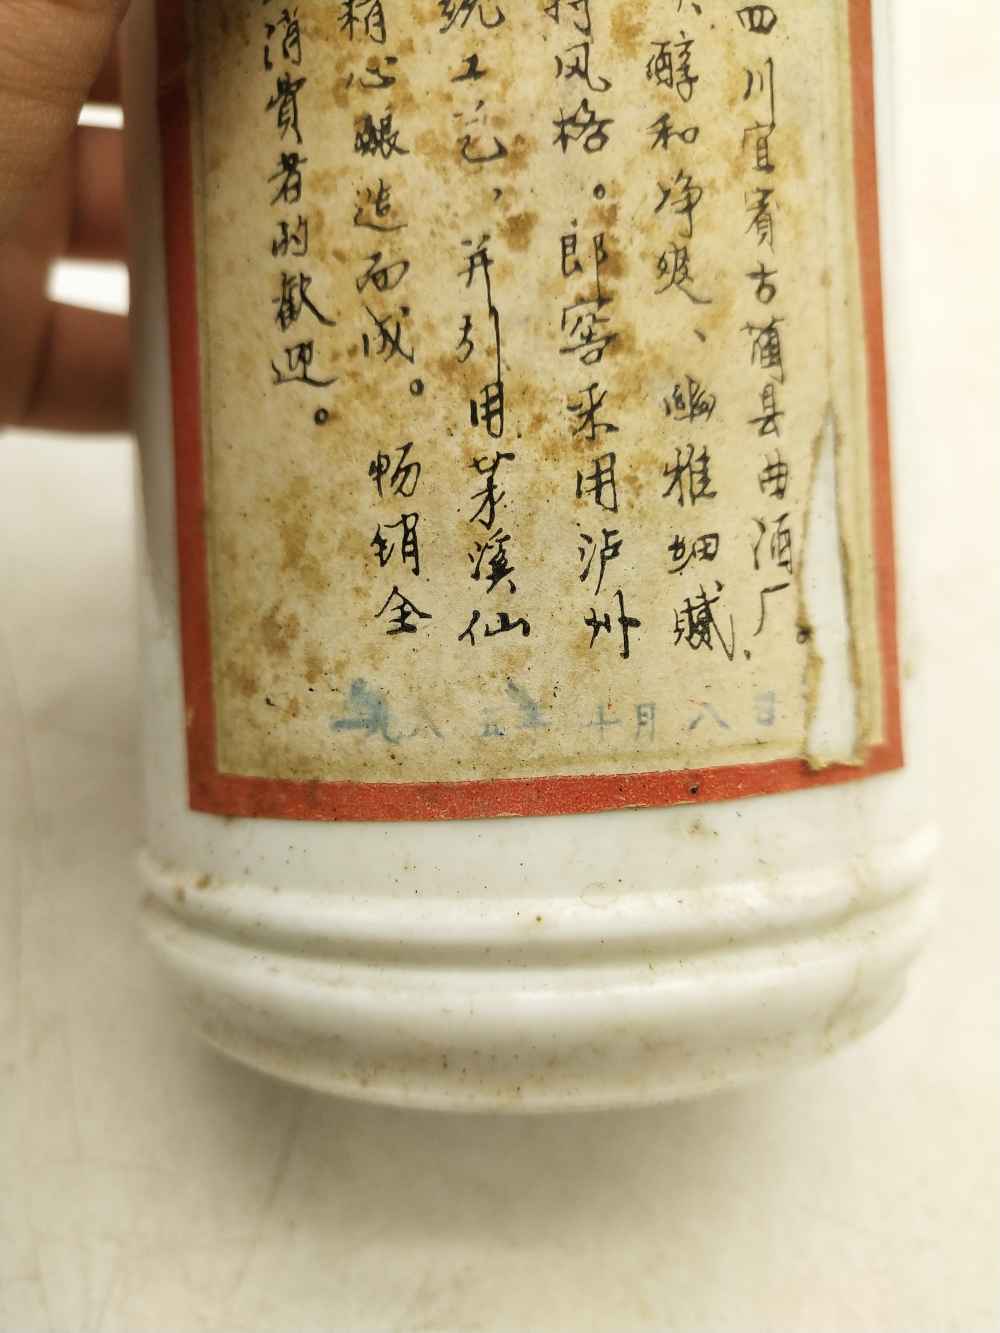 四川宜賓古藺县曲酒厂
醇和净爽、幽雅细腻、
特风格。郎窖采用泸州
统工艺，并引用茅溪仙
精心酿造而成。畅销全
消費者的歡迎。
八五年十月八日